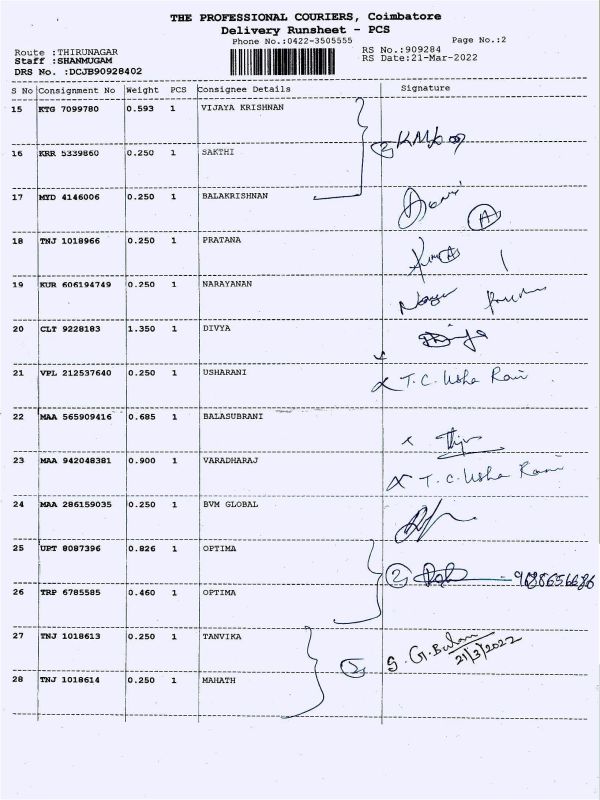 THE PROFESSIONAL COURIERS, Coimbatore
Delivery Runsheet - PCS
Phone No.:0422-3505555 Page No.:2
Route :THIRUNAGAR RS No.:909284
Staff :SHANMUGAM RS Date:21-Mar-2022
DRS No. :DCJB90928402
S No Consignment No Weight PCS Consignee Details Signature
15 KTG 7099780 0.593 1 VIJAYA KRISHNAN
16 KRR 5339860 0.250 1 SAKTHI
17 MYD 4146006 0.250 1 BALAKRISHNAN
A
18 TNJ 1018966 0.250 1 PRATANA
A
19 KUR 606194749 0.250 1 NARAYANAN
20 CLT 9228183 1.350 1 DIVYA
21 VPL 212537640 0.250 1 USHARANI
T.C. Usha Rani
22 MAA 565909416 0.685 1 BALASUBRANI
23 MAA 942048381 0.900 1 VARADHARAJ
T.C. Usha Rani
24 MAA 286159035 0.250 1 BVM GLOBAL
25 UPT 8087396 0.826 1 OPTIMA
2
26 TRP 6785585 0.460 1 OPTIMA
27 TNJ 1018613 0.250 1 TANVIKA
21/3/2022
28 TNJ 1018614 0.250 1 MAHATH